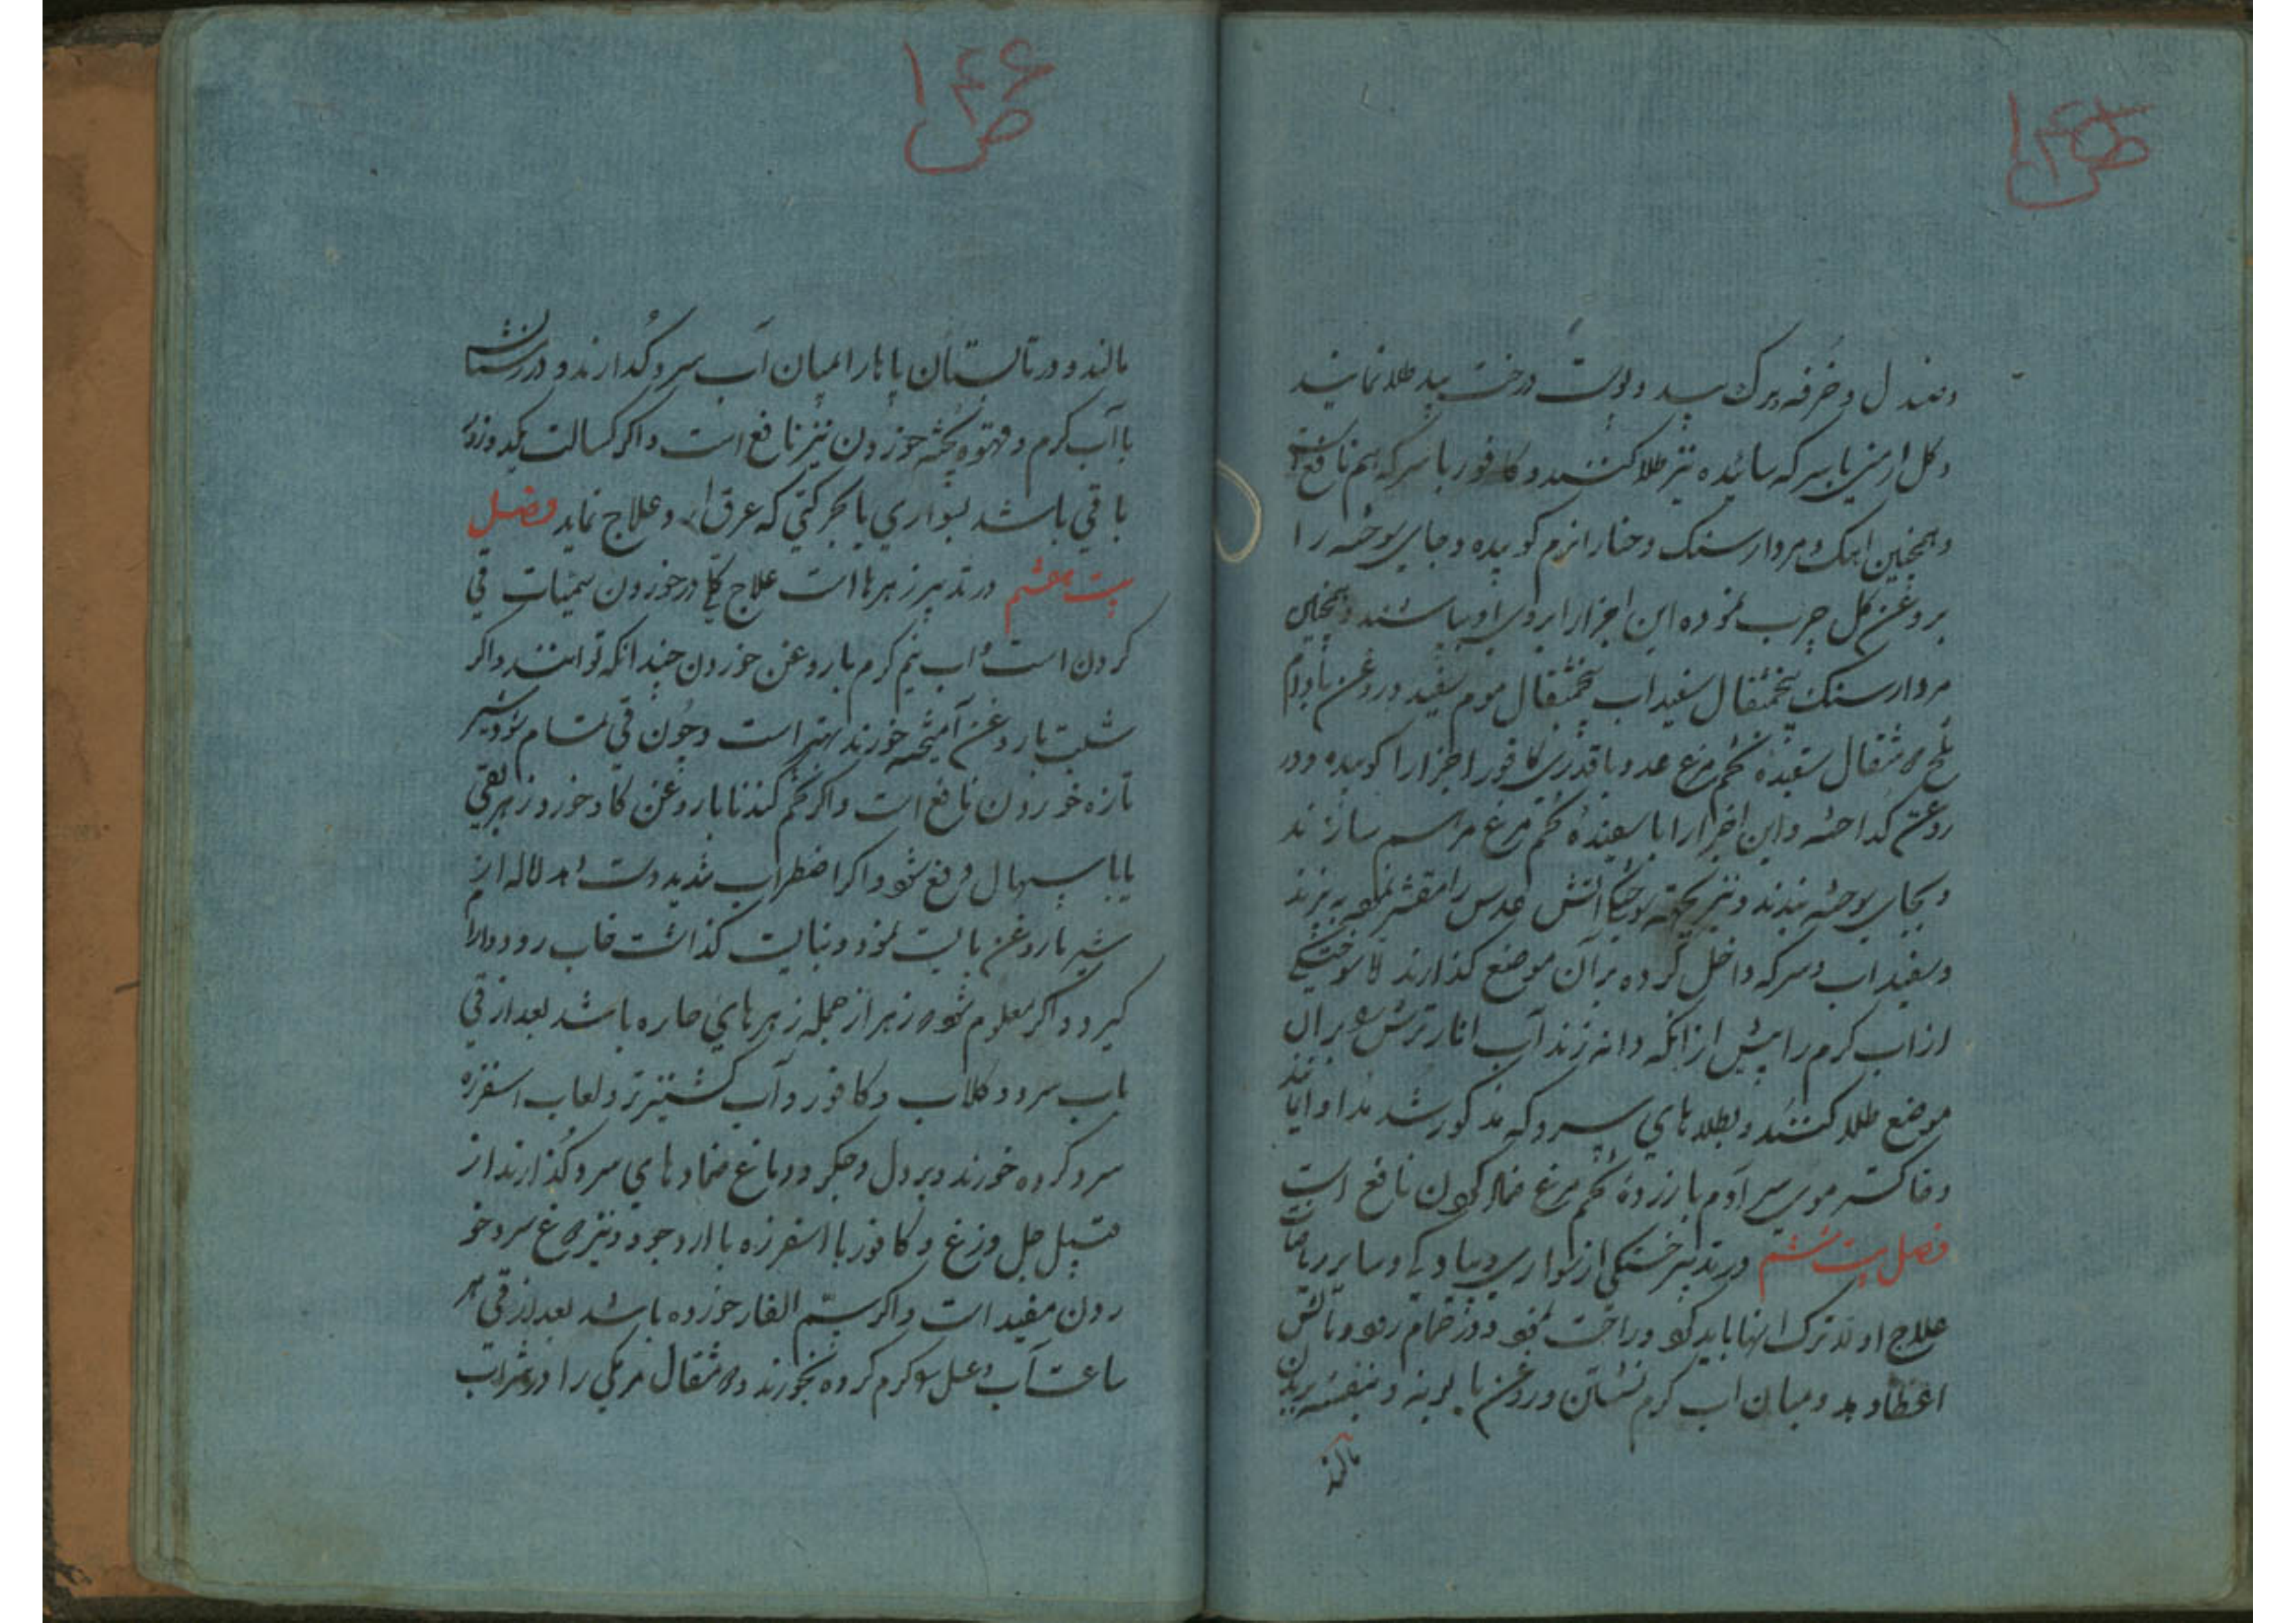 ص ۱۴۵
وصندل و خُرفه و برک بید و پوست درخت بید طلا نمایند
و کل ارمنی با سرکه سائیده نیز طلا کنند و کافور با سرکه هم نافع است
و همچنین اهک و مردارسنک و حنا را نرم کوبیده و جای سوخته را
بروغن کل چرب نموده این اجزا را بروی او بپاشند و همچنین
مردارسنک پنجمثقال سفیداب پنجمثقال موم سفید و روغن بادام
تلخ مثقال سفیدهٔ تخم مرغ عدد با قدری کافور اجزا را کوبیده و در
روغن کداخته و این اجزا را با سفیدهٔ تخم مرغ مرهم سازند
و بجای سوخته بندند و نیز بجهة سوختکی اتش عدس را مقشر نموده بپزند
و سفیداب و سرکه داخل کرده بر آن موضع کذارند سوختکی
از اب کرم را پیش از انکه دانه زند آب انار ترش بر ان
موضع طلا کنند و بطلاهای سرد که مذکور شد مداوا نمایند
و خاکستر موی سر آدم با زردهٔ تخم مرغ ضماد کردن نافع است
فصل بیست ششم در تدبیر خستکی از سواری و پیادکی و سایر ریاضات
علاج اولا ترک انها باید کرد و راحت نمود و در حمام رفع و مالش
اعضا دهد و میان اب کرم نشستن و روغن بابونه و بنفشه بر بدن
مالند
ص ۱۴۶
مالند و در تابستان پاها را میان آب سرد کُذارند و در زمستان
با آب کرم و قهوه پخته خوردن نیز نافع است و اکر کسالت یکدو روز
باقی باشد بسواری یا بحرکتی که عرق اید علاج نماید فصل
بیست هفتم در تدبیر زهرها است علاج کلی در خوردن سمیات قی
کردن است و اب نیم کرم با روغن خوردن چندانکه توانند و اکر
شبت با روغن آمیخته خورند بهتر است و چُون قی تمام شود شیر
تازه خوردن نافع است و اکر تخم کندنا با روغن کاو خورد زهر بقی
یا باسهال دفع شود و اکر اضطراب شدید دست دهد لااله از
شیر با روغن بایست نمود و نبایست کذاشت خاب رود و ارا
کیرد و اکر معلوم شود زهر از جمله زهرهای حاره باشد بعد از قی
باب سرد و کلاب و کافور و آب کشنیز تر و لعاب اسفرزه
سرد کرده خورند و بر دل و جکر و دماغ ضمادهای سرد کُذارند از
قبیل جل وزغ و کافور با اسفرزه با ارد جو و نیز دوغ سرد خو
ردن مفید است و اکر سم الفار خورده باشد بعد از قی هر
ساعت آب و عسل کرم کرده بخورند و مثقال مر مکی را در شراب